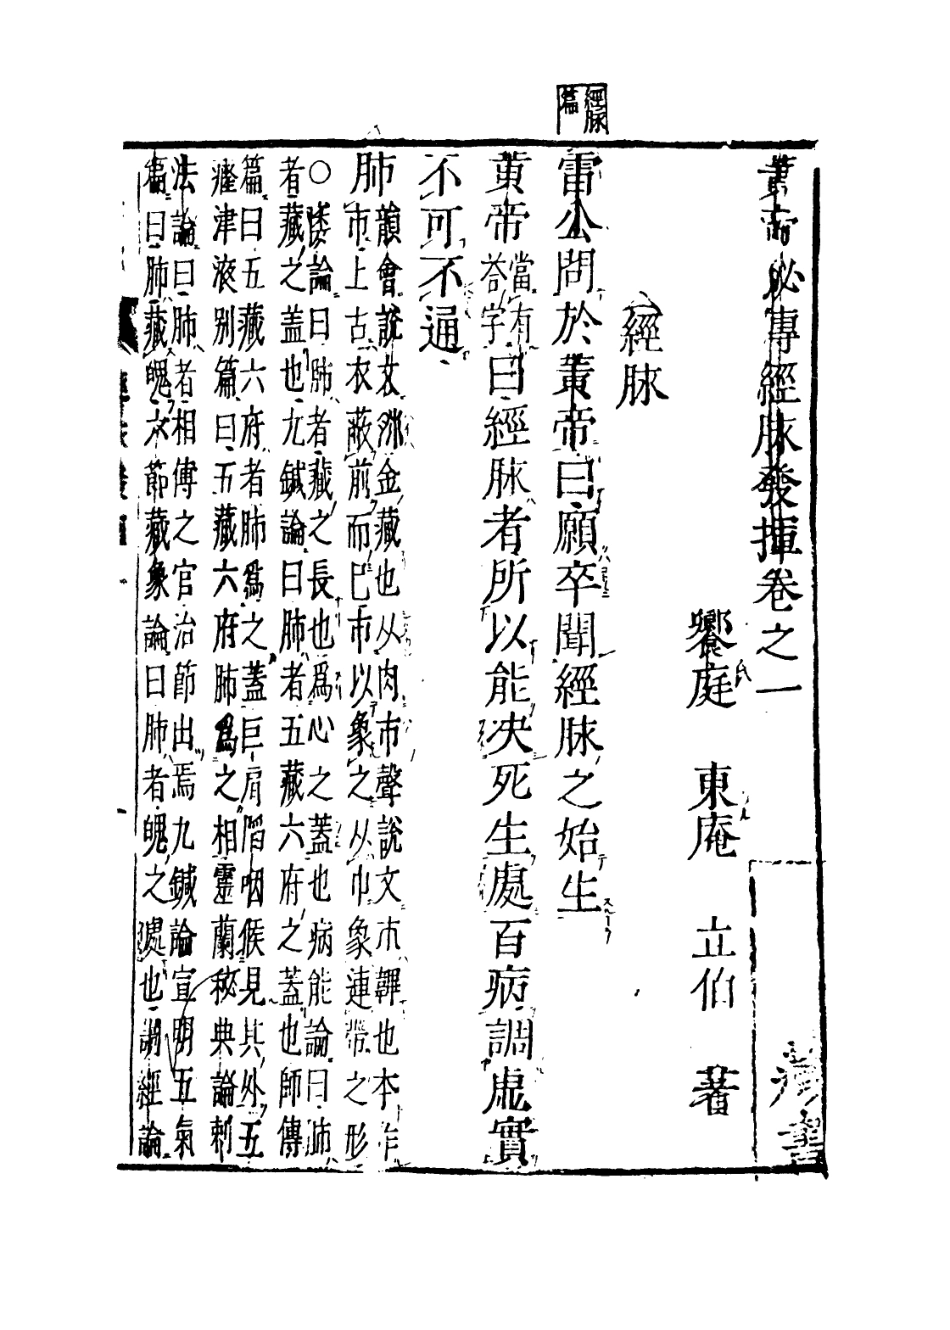 經脉篇
黃帝秘傳經脉發揮卷之一
饗庭 東庵 立伯 著
經脉
雷公問於黃帝曰願卒聞經脉之始生
黃帝當有荅字曰經脉者所以能决死生處百病調虛實
不可不通
肺
韻會說文肺金藏也从肉巿聲說文巿韠也本作
巿上古衣蔽前而巳巿以象之从巾象連帶之形
○痿論曰肺者藏之長也爲心之蓋也病能論曰肺
者藏之盖也九鍼論曰肺者五藏六府之蓋也師傳
篇曰五藏六府者肺爲之蓋巨肩陷咽候見其外五
癃津液别篇曰五藏六府肺爲之相靈蘭秘典論刺
法論曰肺者相傅之官治節出焉九鍼論宣明五氣
篇曰肺藏魄六節藏象論曰肺者魄之處也調經論